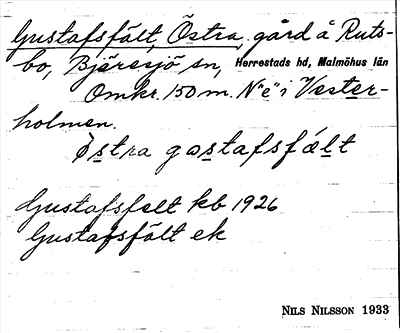 Gustafsfält, Östra, gård å Ruts-
bo, Bjäresjö sn, Herrestads hd, Malmöhus län
Omkr. 150 m. N "e" i Vester-
holmen.
östra gɷstafsfält
Gustafsfelt kb 1926
Gustafsfält ek
NILS NILSSON 1933